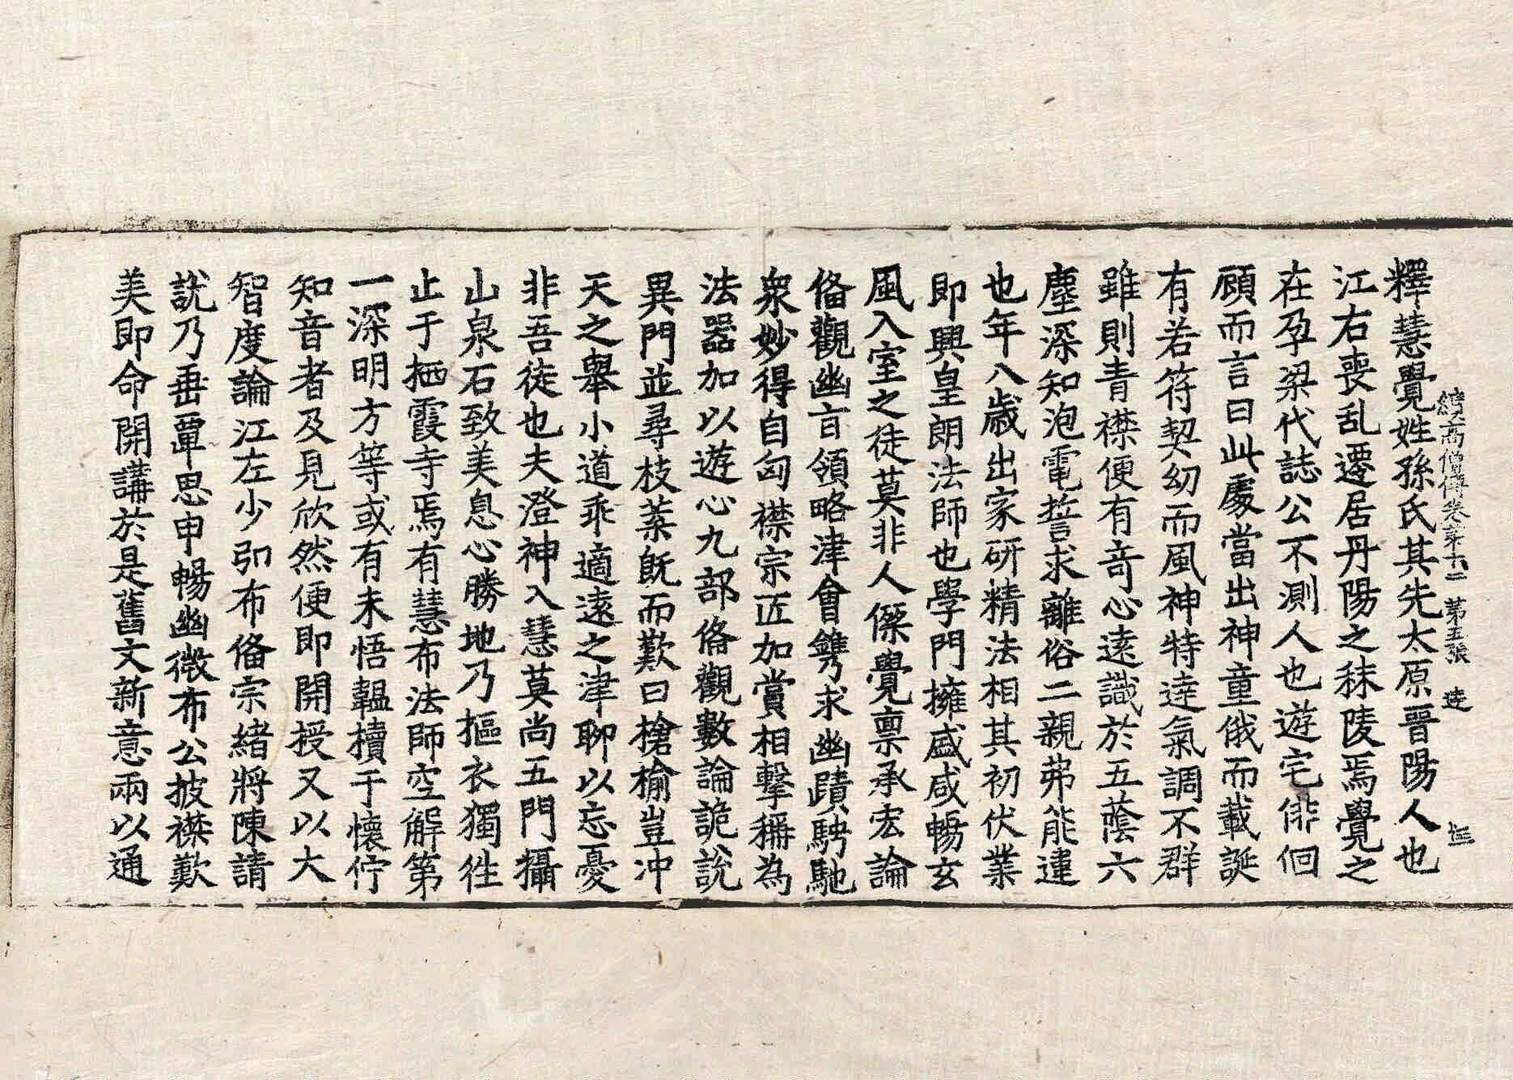 續高僧傳卷第十二 第五張 達
釋慧覺姓孫氏其先太原晉陽人也
江右喪乱遷居丹陽之秣陵焉覺之
在孕梁代誌公不測人也遊宅俳佪
顧而言曰此處當出神童俄而載誕
有若符契幼而風神特達氣調不群
雖則青襟便有奇心遠識於五蔭六
塵深知泡電誓求離俗二親弗能違
也年八歲出家研精法相其初伏業
即興皇朗法師也學門擁盛咸暢玄
風入室之徒莫非人傑覺禀承宏論
俻觀幽盲領略津會鐫求幽賾騁馳
衆妙得自匈襟宗匠加賞相擊稱為
法器加以遊心九部俻觀數論詭說
異門並尋枝葉既而歎曰槍榆豈冲
天之舉小道乖適遠之津聊以忘憂
非吾徒也夫澄神入慧莫尚五門攝
山泉石致美息心勝地乃摳衣獨徃
止于栖霞寺焉有慧布法師空解第
一深明方等或有未悟韞櫝于懷佇
知音者及見欣然便即開授又以大
智度論江左少弘布俻宗緒將陳請
說乃垂覃思申暢幽微布公披襟歎
美即命開講於是舊文新意兩以通